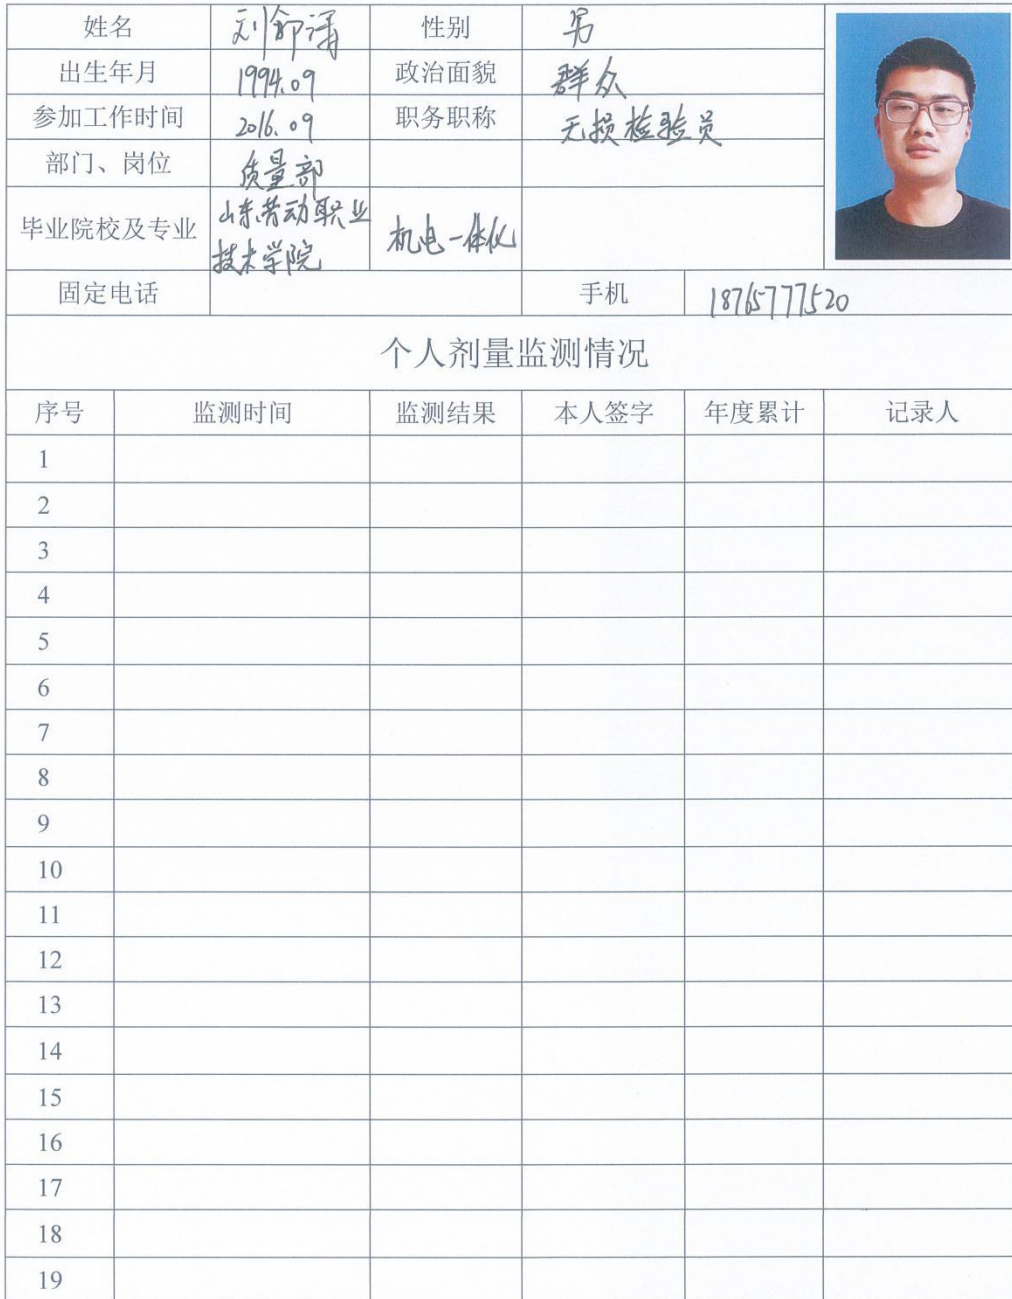 姓名 刘 性别 男
出生年月 1994.09 政治面貌 群众
参加工作时间 2016.09 职务职称 无损检验员
部门、岗位 质量部
毕业院校及专业 山东劳动职业技术学院 机电一体化
固定电话 手机 18765777520
个人剂量监测情况
序号 监测时间 监测结果 本人签字 年度累计 记录人
1
2
3
4
5
6
7
8
9
10
11
12
13
14
15
16
17
18
19